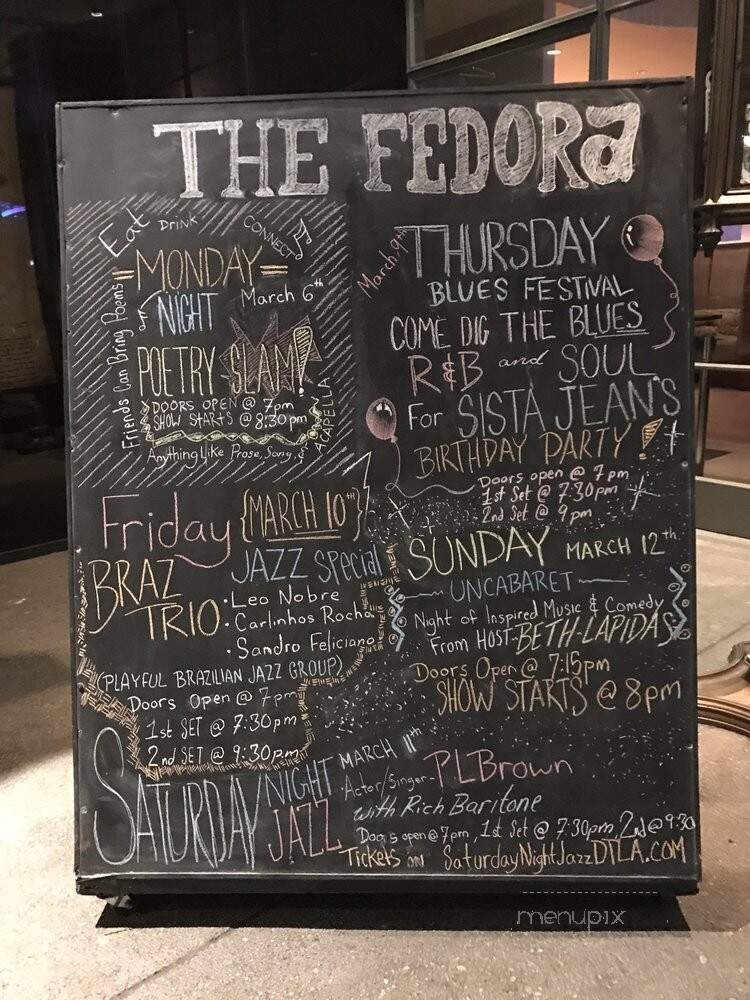 THE FEDORa
Eat DRINK CONNECT
MONDAY
NIGHT March 6th
POETRY SLAM!
DOORS OPEN @ 7pm
SHOW STARTS @ 8:30pm
Friends Can Bring Poems
Anything Like Prose, Song,
ACAPELLA
March 9th
THURSDAY
BLUES FESTIVAL
COME DIG THE BLUES
R&B and SOUL
For SISTA JEAN'S
BIRTHDAY PARTY!
Doors open @ 7pm
1st Set @ 7:30pm
2nd Set @ 9pm
Friday {MARCH 10th}
BRAZ TRIO
JAZZ Special
• Leo Nobre
• Carlinhos Rocha
• Sandro Feliciano
(PLAYFUL BRAZILIAN JAZZ GROUP)
Doors Open @ 7pm
1st SET @ 7:30pm
2nd SET @ 9:30pm
SUNDAY MARCH 12th
UNCABARET
Night of Inspired Music & Comedy
From HOST-BETH-LAPIDAS
Doors Open @ 7:15pm
SHOW STARTS @ 8pm
SATURDAY NIGHT JAZZ
MARCH 11th
Actor/Singer- PLBrown
with Rich Baritone
Doors open @ 7pm, 1st Set @ 7:30pm, 2nd @ 9:30
Tickets on SaturdayNightJazzDTLA.com
menupix